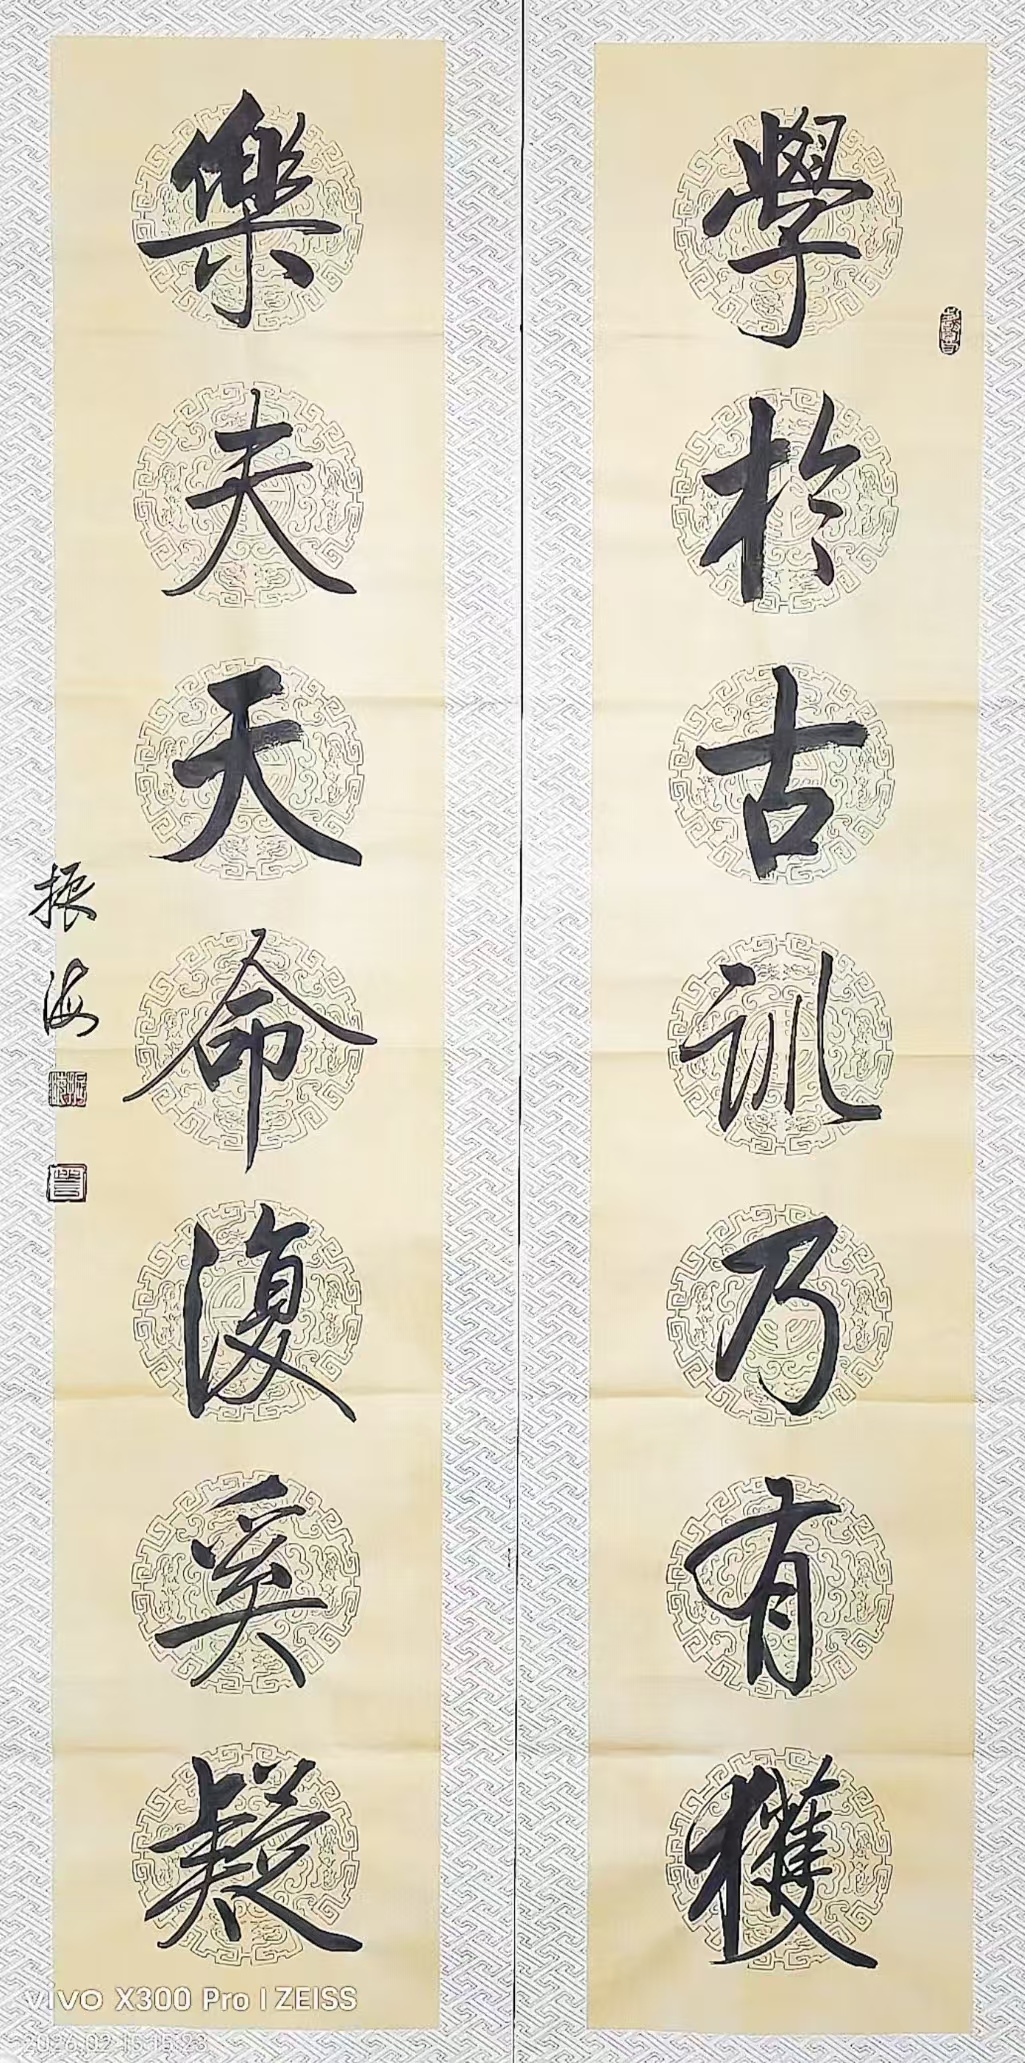 學於古訓乃有獲
樂夫天命復奚疑
振海
vivo X300 Pro | ZEISS
2026.02.15 15:23